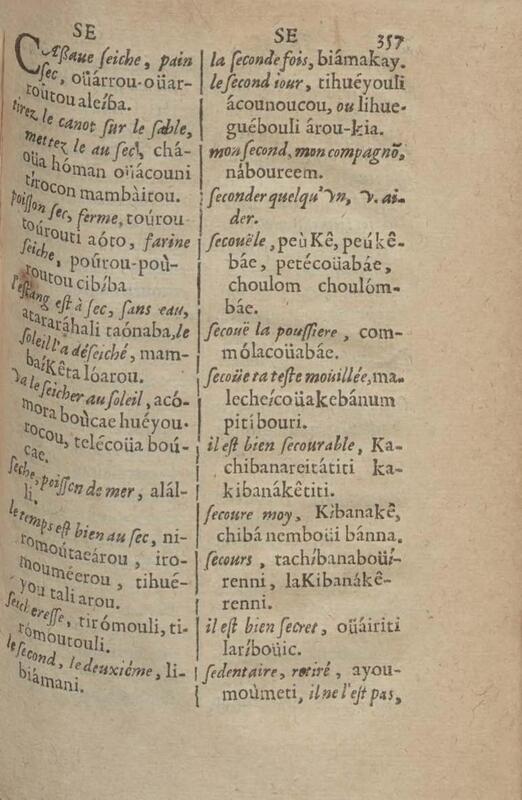 SE
SE
357
CAßaue seiche, pain
sec, oüárrou-oüar-
roútou aleíba.
tirez le canot sur le sable,
mettez le au sec, chá-
oüa hóman oüácouni
tírocon mambàitou.
poisson sec, ferme, toúrou
toúrouti aóto, farine
seiche, poúrou-poù-
routou cibíba
l'estang est à sec, sans eau,
atararáhali taónaba, le
soleil l'a déseiché, mam-
baíKêta lóarou.
va le seicher au soleil, acó-
mora boùcae huéyou-
rocou, telécoüa boú-
cae.
seche, poisson de mer, alál-
li.
le temps est bien au sec, ni-
romoútaeárou, iro-
mouméerou, tihué-
you tali arou.
seicheresse, tirómouli, ti-
rómoutouli.
le second, le deuxiéme, li-
biámani.
la seconde fois, biámakay.
le second iour, tihuéyouli
ácounoucou, ou lihue-
guébouli árou-kia.
mon second, mon compagnõ,
náboureem.
seconder quelqu'vn, v. ai-
der.
secouële, peùKê, peúkê-
báe, petécoüabáe,
choulom choulóm-
báe.
secouë la poussiere, com-
mólacoüabáe.
secoüe ta teste mouillée, ma-
lecheícoüakebánum
piti bouri.
il est bien secourable, Ka-
chibanareitátiti ka-
kibanákêtiti.
secoure moy, Kibanakê,
chibá nemboüi bánna.
secours, tachíbanaboüí-
renni, laKibanákê-
renni.
il est bien secret, oüáiriti
laríboüic.
sedentaire, retiré, ayou-
moùmeti, il ne l'est pas,